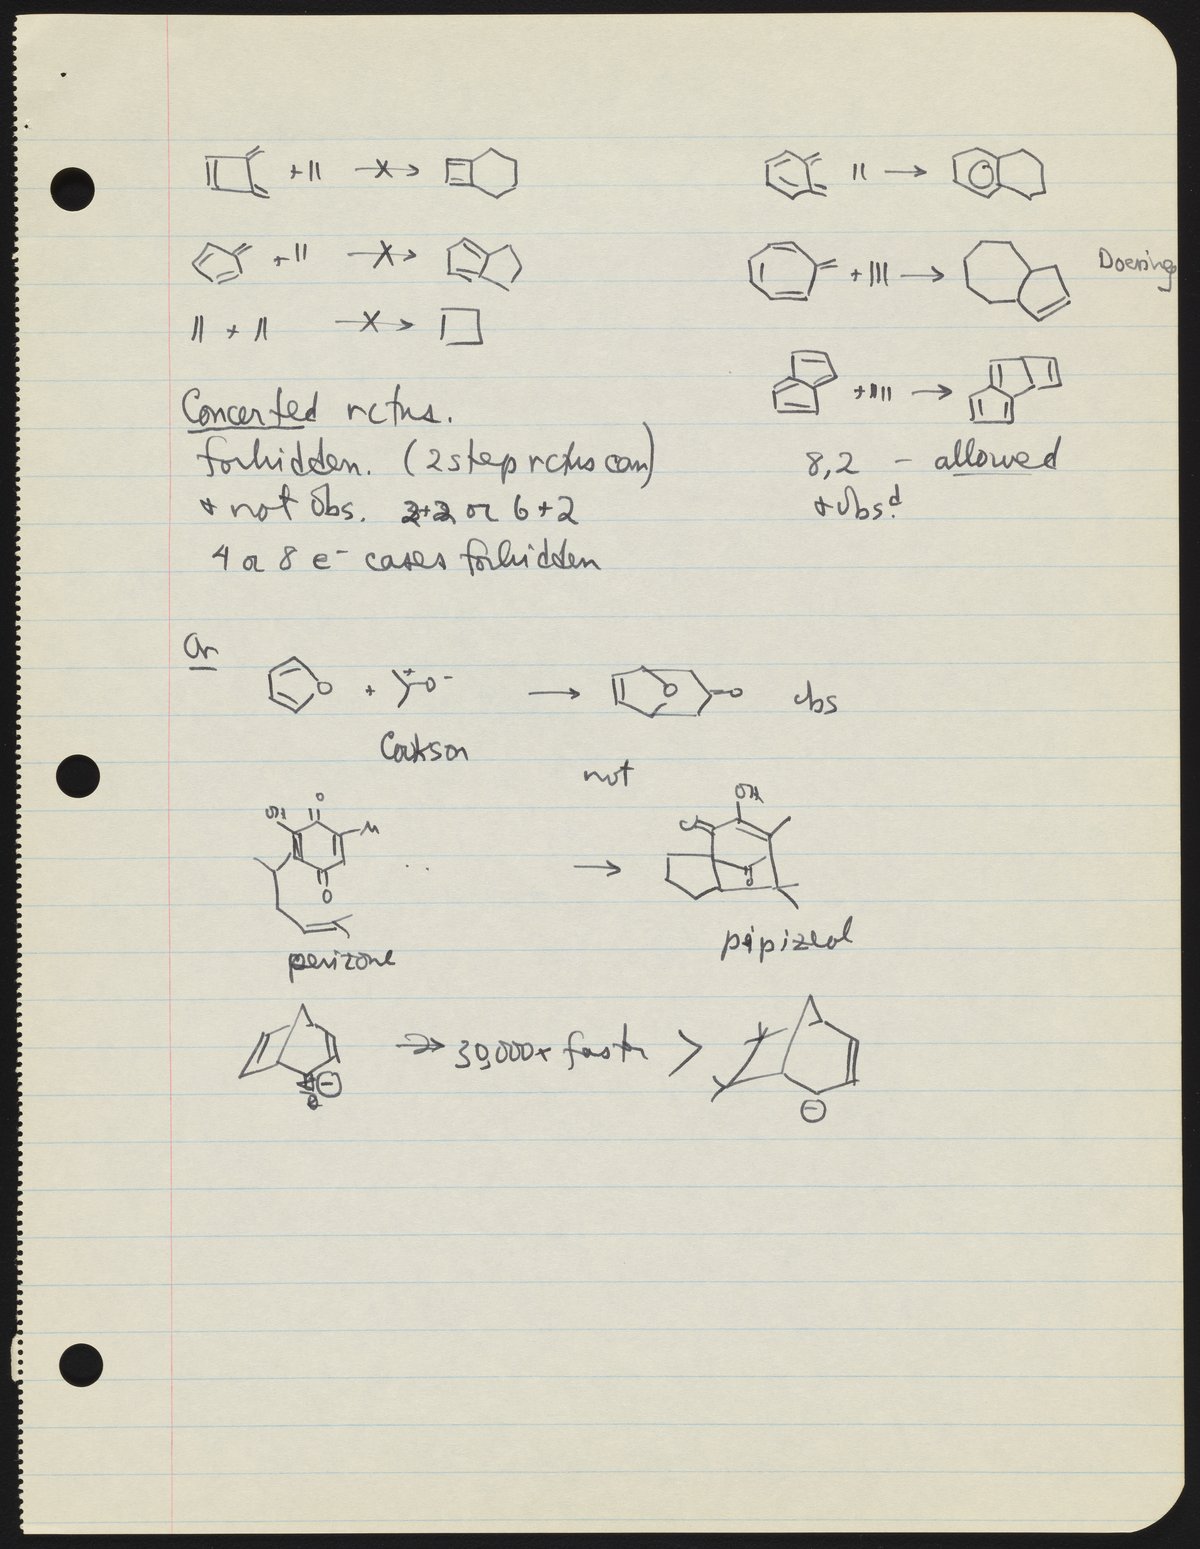 + ||
Doering
+ |||
Concerted rctns.
forbidden. (2 step rctns can)
& not obs. 2+2 or 6+2
4 or 8 e- cases forbidden
8,2 - allowed
& obs.d
Or
O + O- → O =O obs
Cookson
not
OH O
O
OH
O
perizone
pipizeol
→ 30,000x faster >
⊖ ⊖